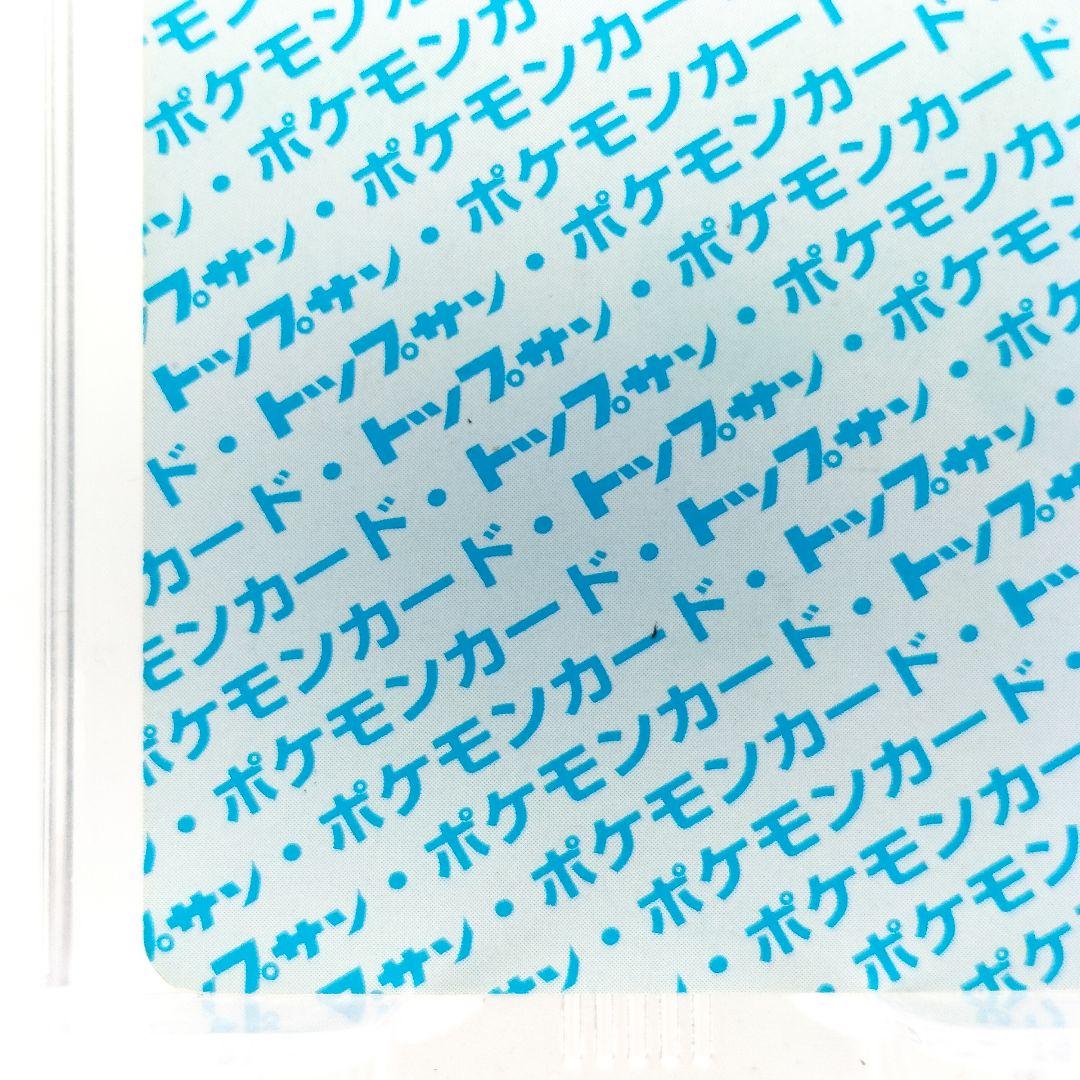 モン
ポケモン
ン・ポケモンカ
プサン・ポケモンカー
トップサン・ポケモンカード
ド・トップサン・ポケモンカード
カード・トップサン・ポケモンカード
モンカード・トップサン・ポケモンカー
ポケモンカード・トップサン・ポケモン
・ポケモンカード・トップサン・ポケ
プサン・ポケモンカード・トップサン・
プサン・ポケモンカード・トップサ
サン・ポケモンカード・トッ
ン・ポケモンカード・
・ポケモンカー
ポケモン
ポケ